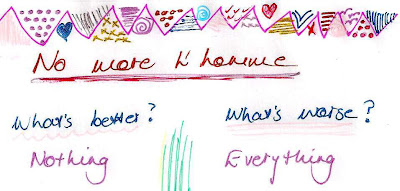 No more l'homme
What's better?
What's worse?
Nothing
Everything